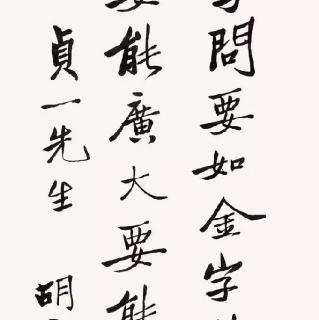 問要如金字
能廣大要能
貞一先生 胡